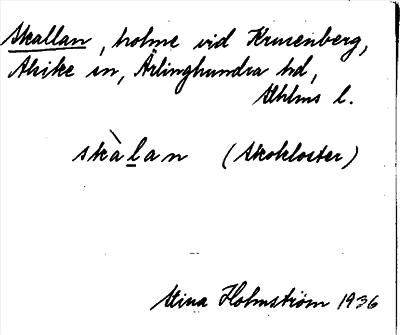 Skallan, holme vid Krusenberg,
Alsike sn, Ärlinghundra hd,
Sthlms l.
skàlan (Skokloster)
Stina Holmström 1936